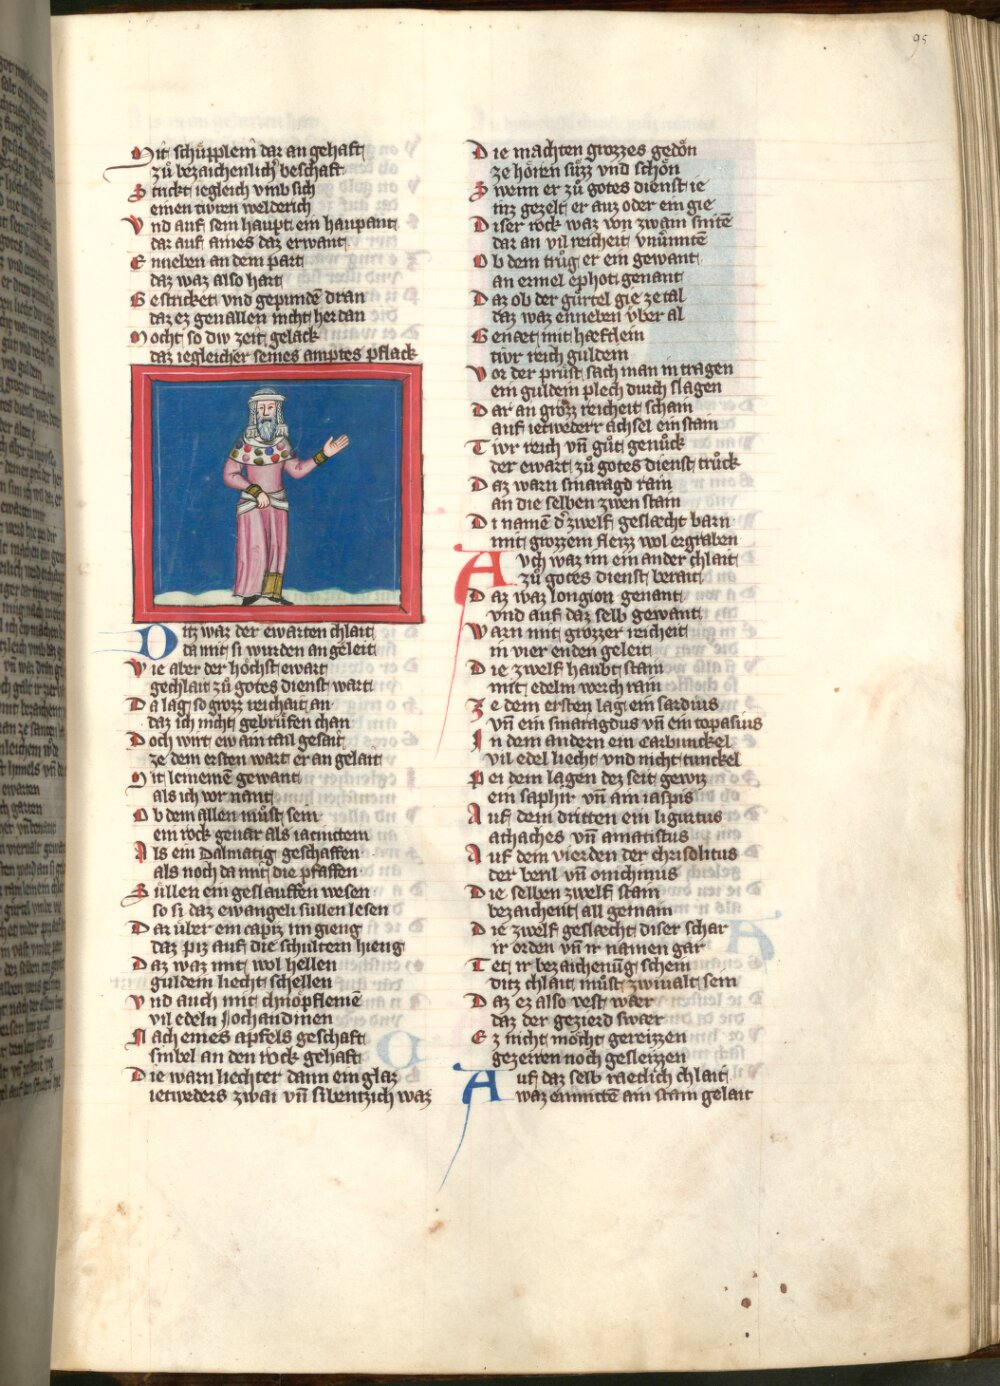 95
Mit schupplein dar an gehaft
zů bezaichenlichr beschaft
Strickt iegleich vmb sich
einen tivren welderich
Vnd auf sein haupt ein haupant
dar auf aines daz erwant
Enneben an dem part
daz waz also hart
Gestricket vnd gepundē dran
daz ez geuallen nicht her dan
Mocht so div zeit gelack
daz iegleicher seines amptes pflack
Ditz waz der ewarten chlait
da mit si wurden an geleit
Wie aber der höchst ewart
gechlait zů gotes dienst wart
Da lag so grozz reichait an
daz ich nicht gebrüfen chan
Doch wirt ew ain tail gesait
ze dem ersten wart er an gelait
Mit leinemē gewant
als ich vor nant
Ob dem allen můst sein
ein rock geuar als iacinctein
Als ein Dalmatig geschaffen
als noch da mit die pfaffen
Süllen ein geslauffen wesen
so si daz ewangeli süllen lesen
Dar über ein capiz im gieng
daz piz auf die schultern hieng
Daz waz mit wol hellen
guldein liecht schellen
Vnd auch mit chnöpflemē
vil edeln Jochandinen
Nach eines apfels geschaft
sinbel an den rock gehaft
Die warn liechter dann ein glaz
ietweders zwai vn̄ sibentzich waz
Die machten grozzes gedön
ze hören süzz vnd schön
Swenn er zů gotes dienst ie
inz gezelt er auz oder ein gie
Diser rock waz von zwain snitē
dar an vil reicheit vnuͤmitē
Ob dem trůg er ein gewant
an ermel ephot genant
Daz ob der gürtel gie ze tal
daz waz enneben vber al
Genæt mit hæftlein
tivr reich guldein
Vor der prust sach man in tragen
ein guldein plech durch slagen
Dar an grozz reicheit schain
auf ietwederr achsel ein stain
Tivr reich vn̄ gůt genůck
der ewart zů gotes dienst trůck
Daz warn smaragd rain
an die selben zwen stain
Di namē dr zwelf geslæcht barn
mit grozzem fleizz wol ergraben
Auch waz im ein ander chlait
zů gotes dienst berait
Daz waz longion genant
vnd auf daz selb gewant
Warn mit grozzer reicheit
in vier enden geleit
Die zwelf haubt stain
mit edelm werch rain
Ze dem ersten lag ein sardius
vn̄ ein smaragdus vn̄ ein topasius
In dem andern ein Carbunckel
vil edel liecht vnd nicht tunckel
Pei dem lagen dez seit gewiz
ein saphir vn̄ ain iaspis
Auf dem dritten ein ligurius
achaches vn̄ amatistus
Auf dem vierden der chrisolitus
der beril vn̄ onichinus
Die selben zwelf stain
bezaichent all gemain
Die zwelf geslæcht diser schar
ir orden vn̄ ir namen gar
Tet ir bezaichenūg schein
ditz chlait můst zwiualt sein
Daz ez also vest wær
daz der gezierd swær
Ez nicht mocht gereizzen
gezerren noch gesleizzen
Auf daz selb rætlich chlait
waz enmittē ain stain gelait